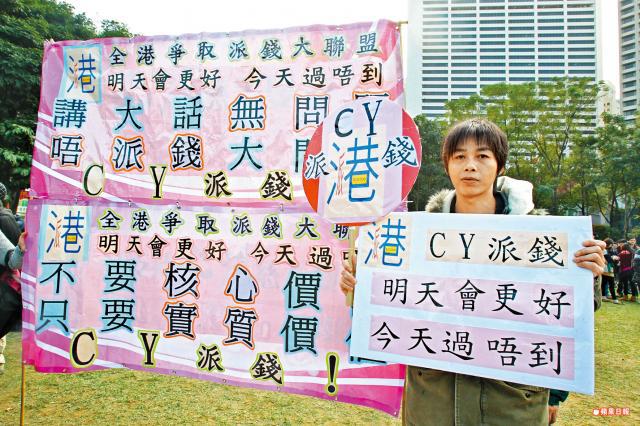 港
全港爭取派錢大聯盟
明天會更好 今天過唔到
講大話無問
唔派錢大
CY派錢
港
全港爭取派錢大聯
明天會更好 今天過唔
不要核心價
只要實質價
CY派錢!
CY
派港錢
港 CY派錢
明天會更好
今天過唔到
蘋果日報